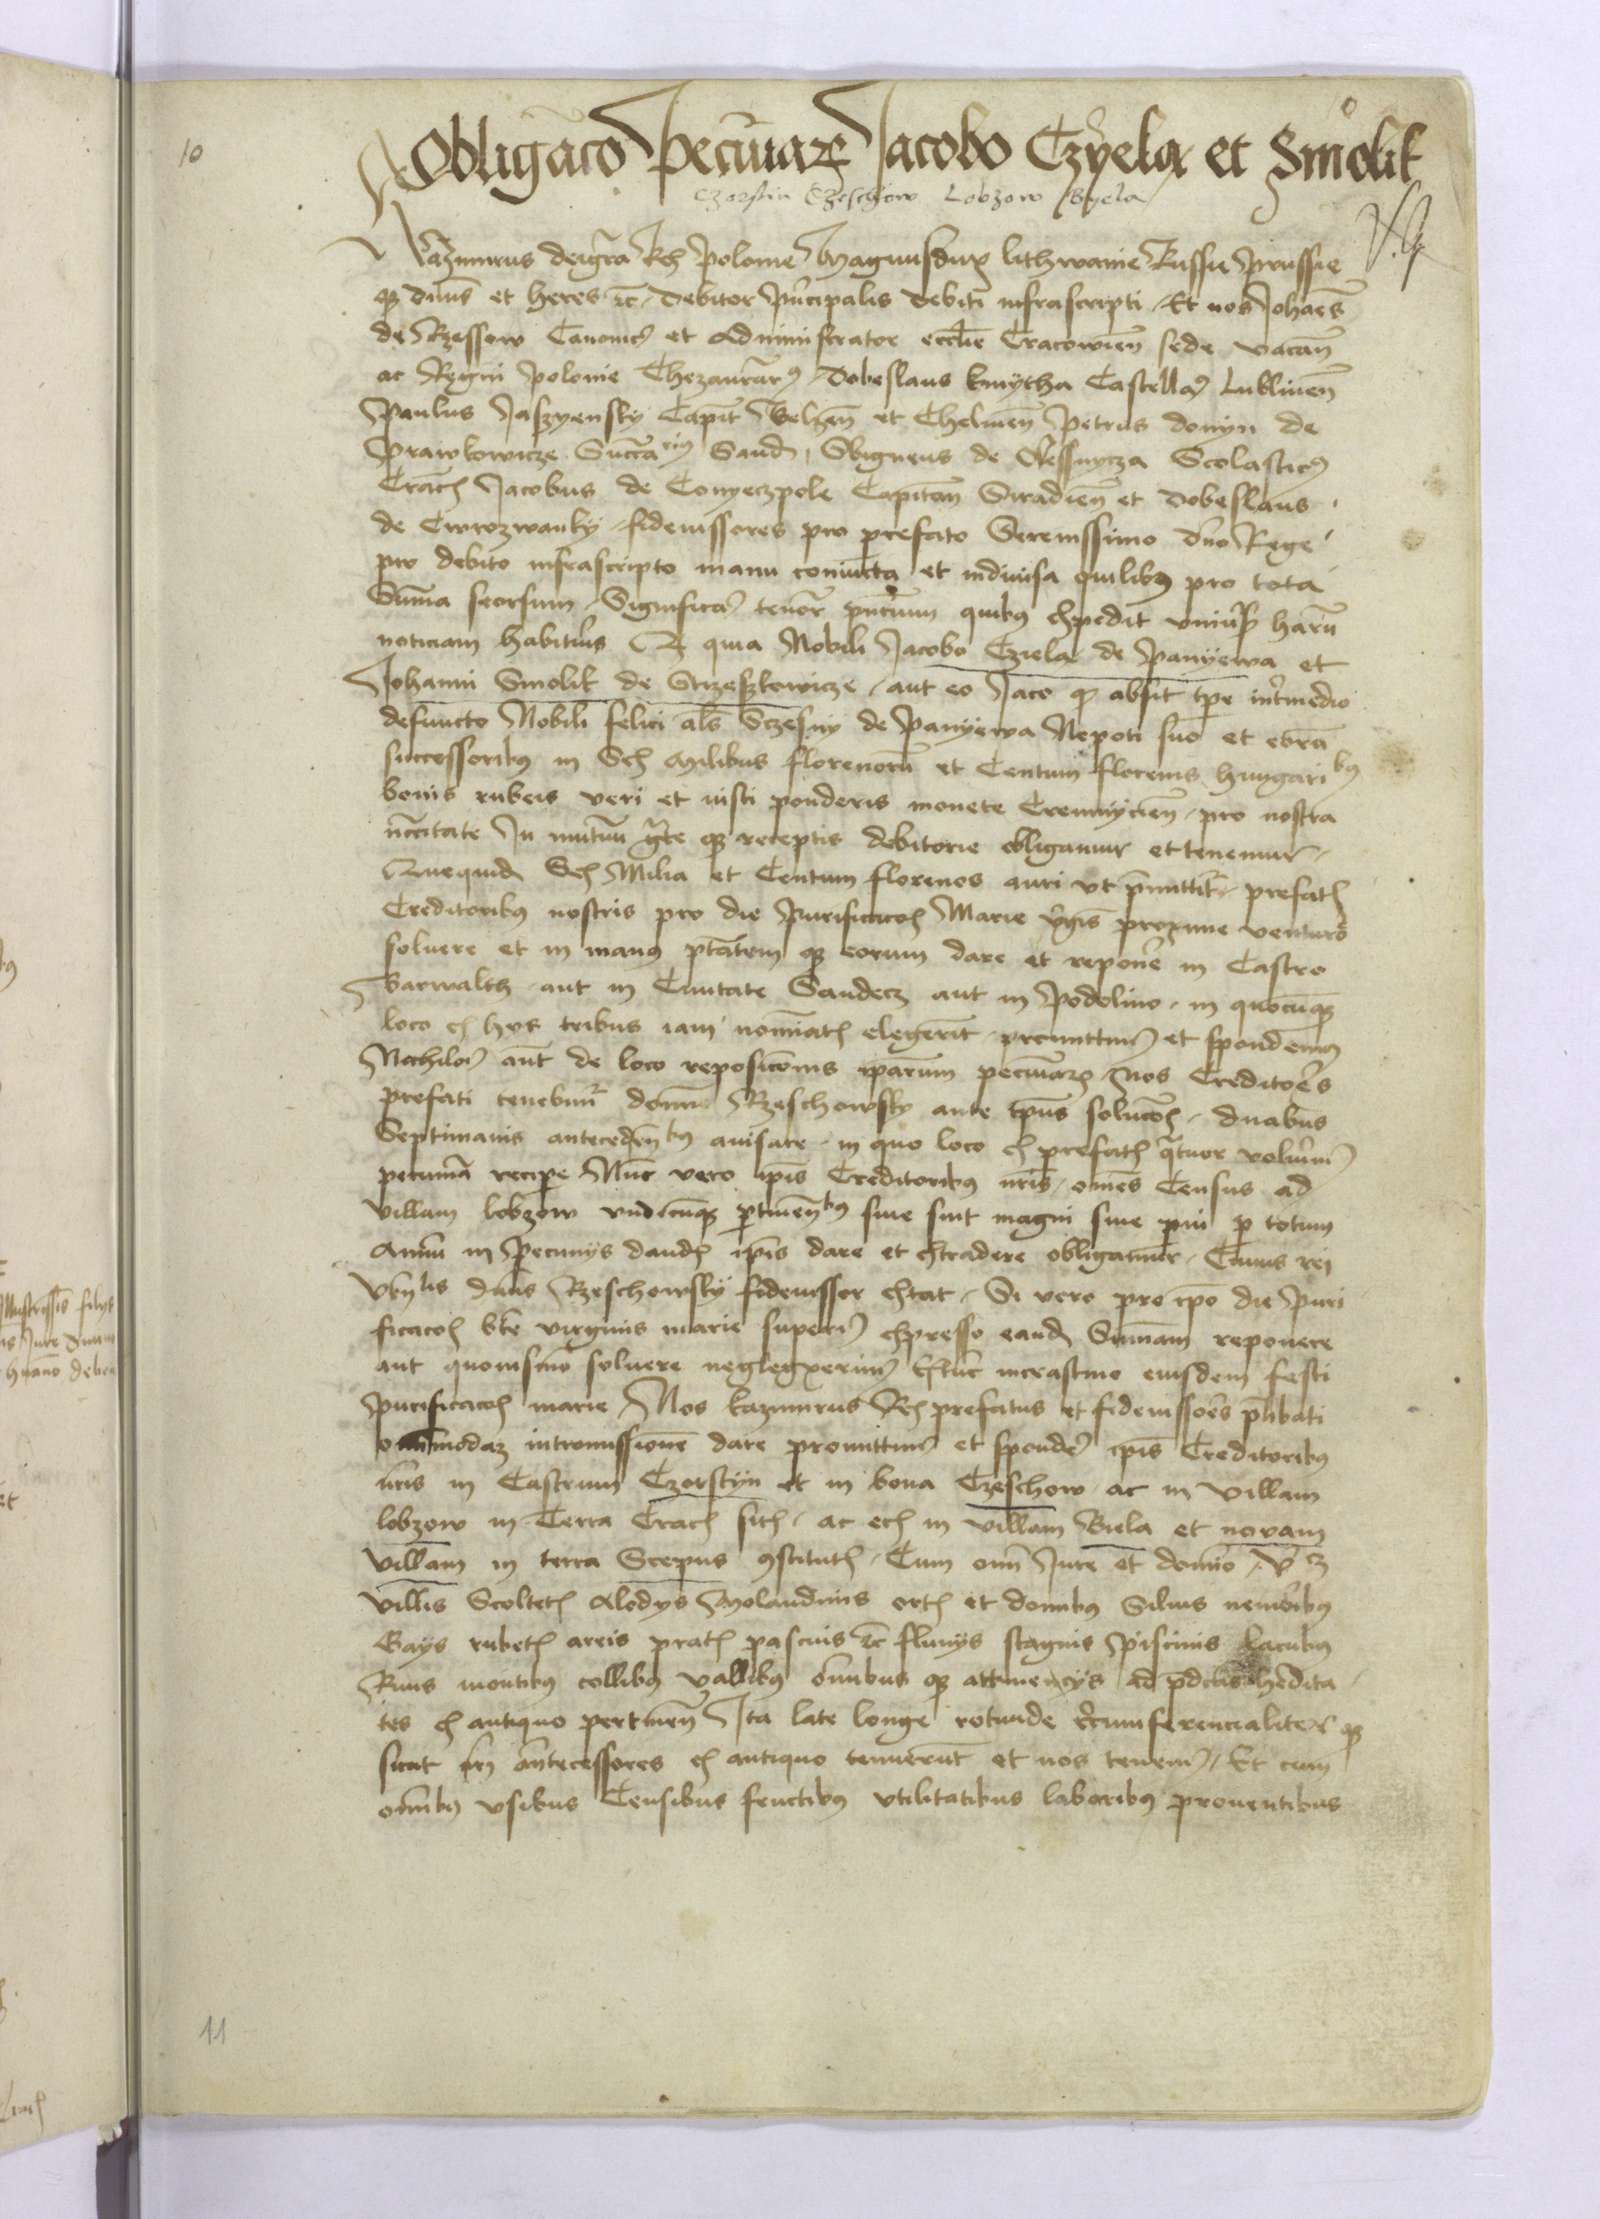 10
Obligaco pecuniar Jacobo Czyela et Smolik
Czorstin Czeschow Lobzow Byela
Kazimirus dei gra Rex Polonie Magnusdux lithwanie Russie Prussie
q dnus et heres etc debitor principalis debiti infrascripti Et nos Johaes
de Rzessow Canonic et Administrator ecclie Cracowien sede vacan
ac Regni polonie Thezaurari Dobeslaus kmytha Castella Lublinen
Paulus Jaszyensky Capit Belzen et Chelmen Petrus donyn de
Prawkowicze Succarius Sand Sbigneus de Olessnycza Scolastic
Crac Jacobus de Conyeczpole Capitan Siradien et Dobeslaus
de Cwrozwanky fideiussores pro prefato Serenissimo dno Rege
pro debito infrascripto manu coniuncta et indiuisa quilibus pro tota
Suma seorsum Significa tenor pntium quibus expedit vniuers haru
noticiam habituris Q quia Nobili Jacobo Cziela de Panyewa et
Johanni Smolik de Strzeszkowicze aut eo Jaco q absit tpe intermedio
defuncto Nobili felici als Sczesny de Panyewa Nepoti suo et eoram
successoribus in Sex Milibus florenoru et Centum florenis hungaribus
bonis rubeis veri et iusti ponderis monete Cremnycien pro nostra
nccitate In mutuu grte q receptis debitorie obligamur et tenemur
Quequid Sex Milia et Centum florenos auri vt premittit prefatis
Creditoribus nostris pro die Purificacois Marie virgis proxime venturo
soluere et in manus ptatem q eorum dare et reponere in Castro
Barwalth aut in Ciuitate Sandecz aut in Podolino in quocunq
loco ex hys tribus iam nominatis elegerit promittimus et spondemus
Nichilo aut de loco reposicionis ipsarum pecuniarum Nos Creditores
prefati tenebimur domino Rzeschowsky ante tpus solucois duabus
Septimanis antecedentibus auisare in quo loco ex prefatis quatuor voluerim
pecuniam recipe Nunc vero ipis Creditoribus nris omes Census ad
villam lobzow vndicunq ptinentibus siue sint magni siue pui p totum
Annu in Pecunys dandis ipis dare et extradere obligamur Cuius rei
dnus Rzeschowsky fideiussor extat Si vero pro ipo die Puri
ficacois bte virginis marie superi expresso eand Summam reponere
aut quouismodo soluere neglexerimus Extunc incrastino eiusdem festi
Purificacois marie Nos kazimirus Rex prefatus et fideiussores plibati
omnimodam intromissione dare promittimus et spondem ipis Creditoribus
nris in Castrum Czorstyn et in bona Czeschow ac in villam
lobzow in Terra Crac sitis ac eciam in villam Biela et novam
villam in terra Scepus constitutis Cum omi Jure et domino
villis Scoltetis Alodys Molandinis ortis et domibus Siluis nemoribus
Gays rubetis areis pratis pascuis etc fluuys stagnis piscinis lacubus
Riuis montibus collibus vallibus omibus q attinencys ad pdctas hedita
tes ex antiquo pertinen Ita late longe rotunde circumferencialiter q
sicut nri antecessores ex antiquo tenuerunt et nos tenem Et cum
omibus vsibus Censibus fructibus vtilitatibus laboribus prouentibus
11